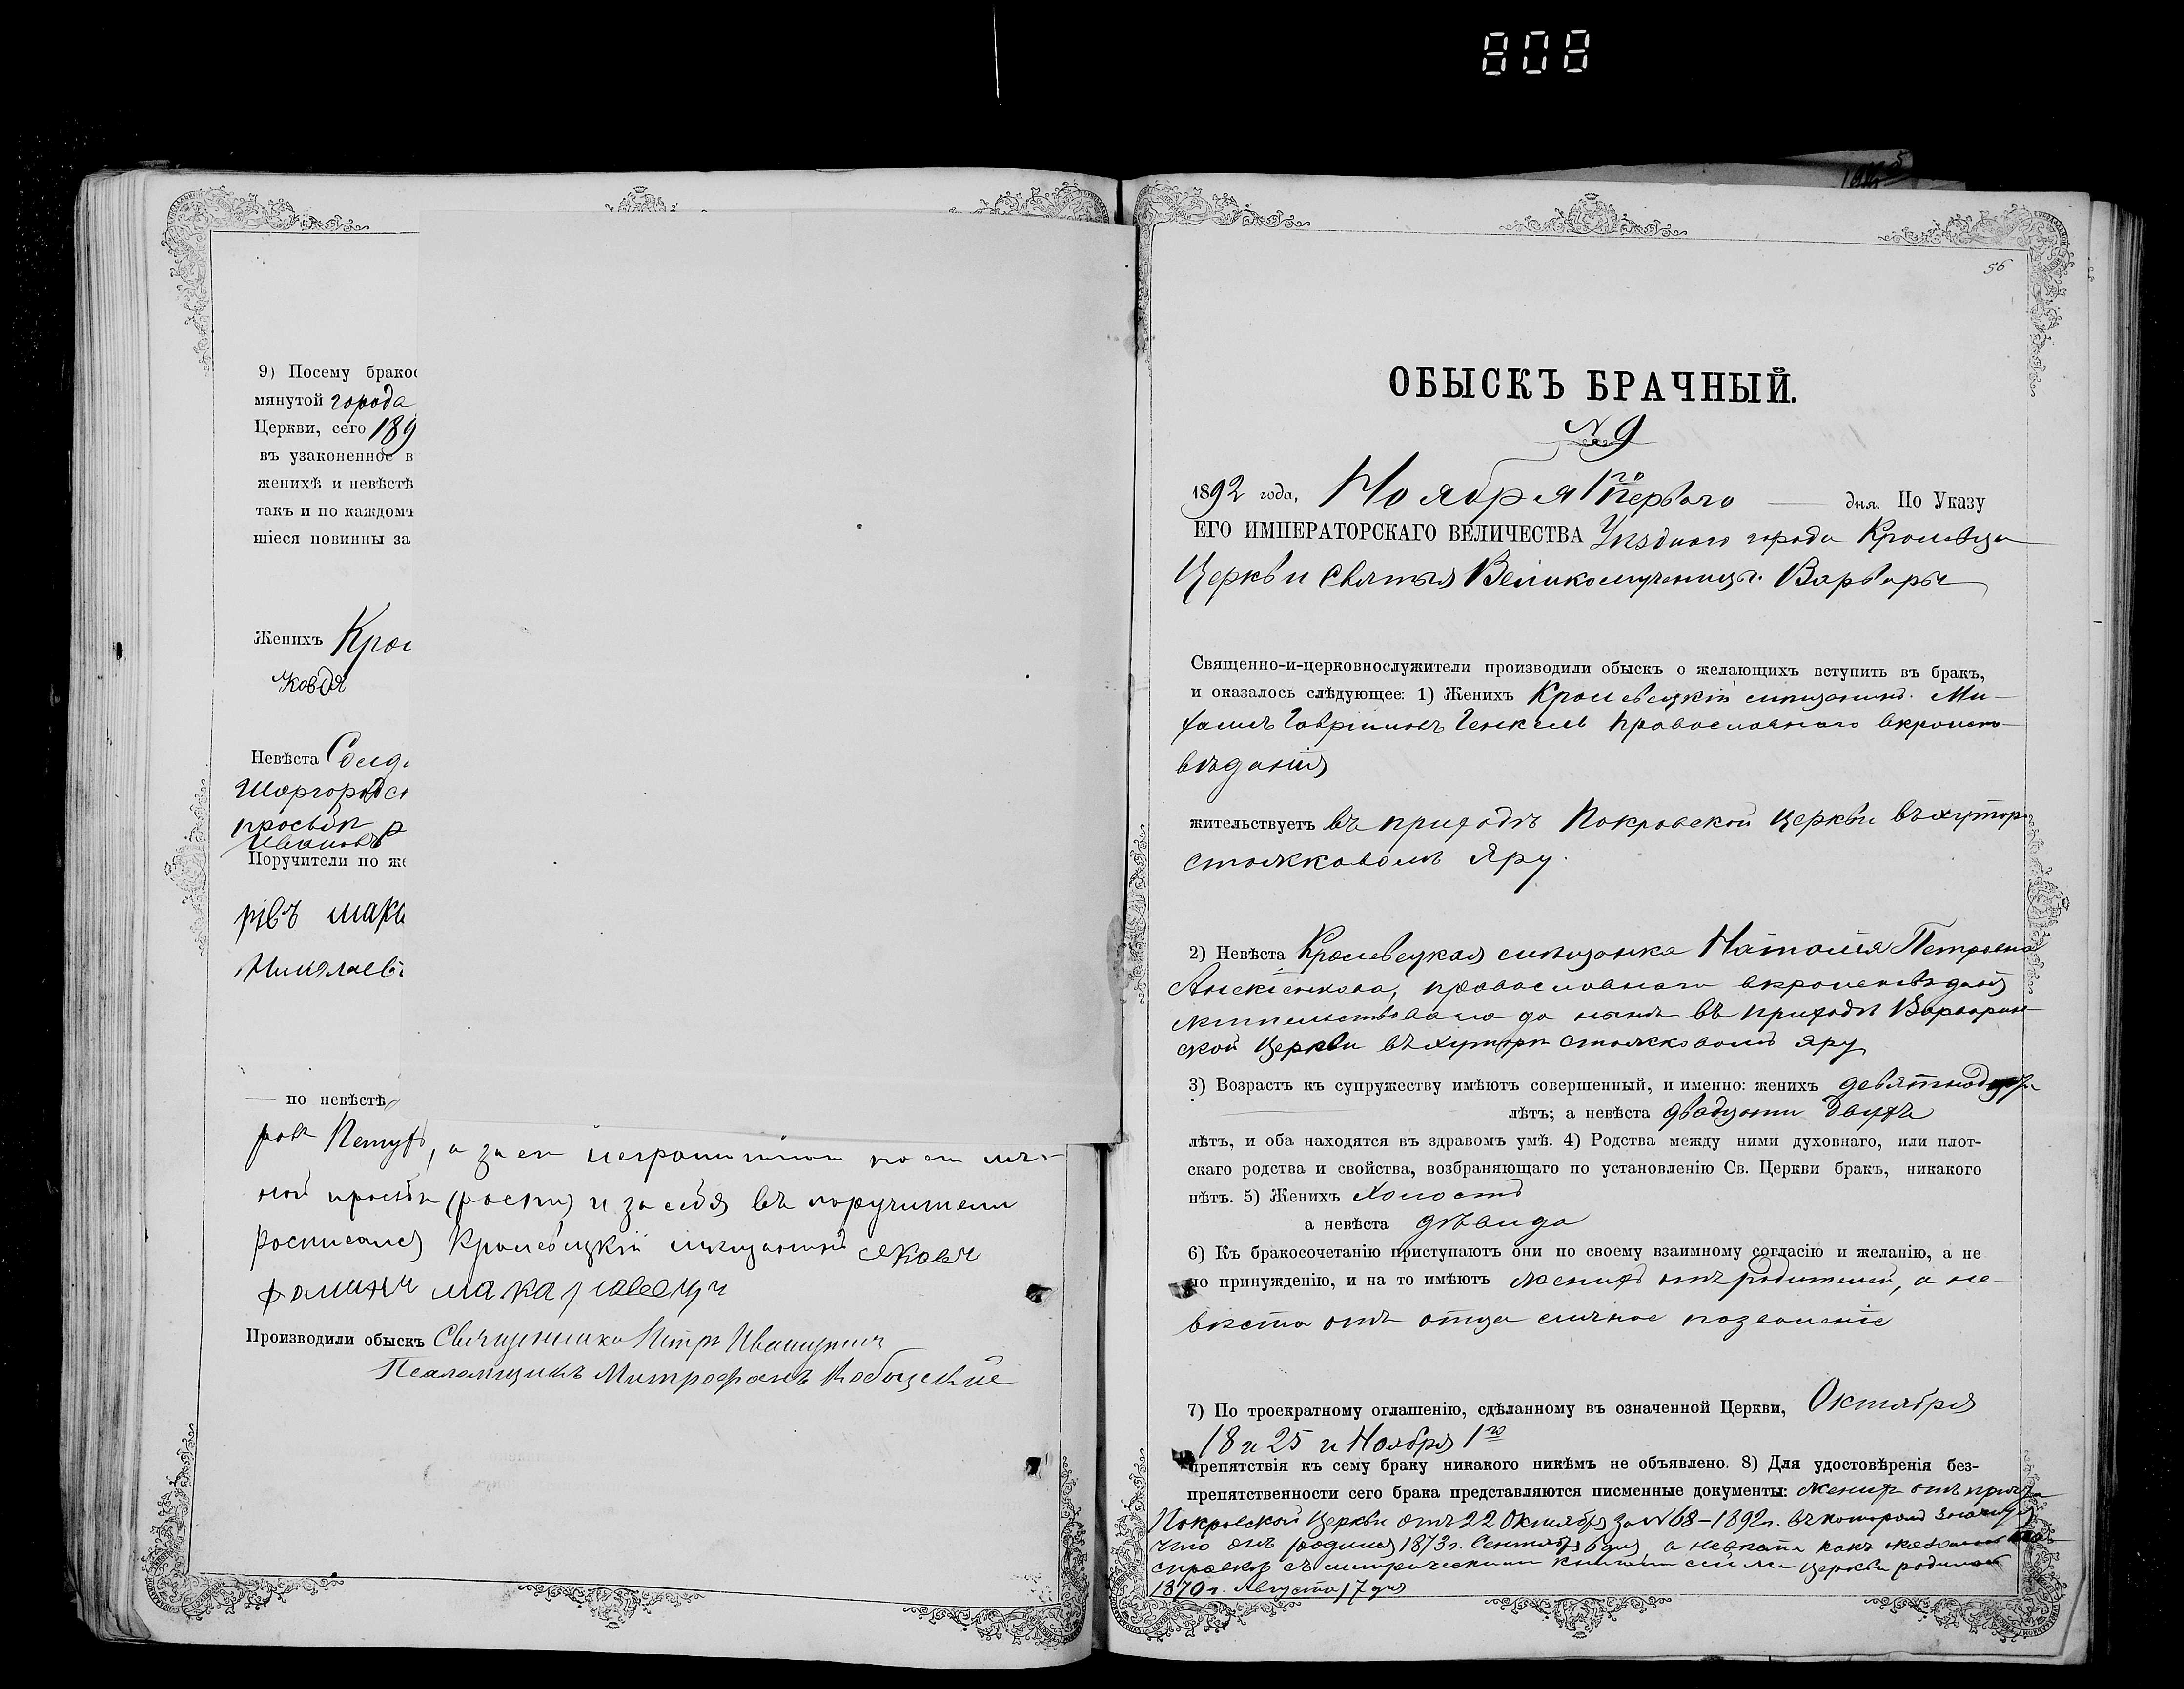 808
9) Посему брако
мянутой города
Церкви, сего 189
въ узаконенное в
женихѣ и невѣстѣ
такъ и по каждомъ
шіеся повинны за
Женихъ
Невѣста
Шаргородс
просьбѣ
Ивановъ
Поручители по же
Николаев
— по невѣстѣ
Петух, а за ея неграмотною по ея лич-
ной просьбѣ (роспи) и за себя въ поручители
росписался Кролевецкій мѣщанинъ Яковъ
Фоминъ
Производили обыскъ Священникъ Петръ
Псаломщикъ Митрофанъ
56
ОБЫСКЪ БРАЧНЫЙ.
№ 9
1892 года, Ноября 1го Перваго — дня. По Указу
ЕГО ИМПЕРАТОРСКАГО ВЕЛИЧЕСТВА Уѣзднаго города Кролевца
Церкви Святыя Великомученицы Варвары
Священно-и-церковнослужители производили обыскъ о желающихъ вступить въ бракъ,
и оказалось слѣдующее: 1) Женихъ Кролевецкій мѣщанинъ Ми-
хаилъ Гавріиловъ Генкель православнаго вѣроиспо-
вѣданія
жительствуетъ въ приходѣ Покровской Церкви въ хуторѣ
Яру.
2) Невѣста Кролевецкая мѣщанка Наталія Петровна
православнаго вѣроисповѣданія
жительствовала до нынѣ въ приходѣ Варварин-
ской Церкви въ хуторѣ Яру
3) Возрастъ къ супружеству имѣютъ совершенный, и именно: женихъ девятнадцати
лѣтъ; а невѣста двадцати двухъ
лѣтъ, и оба находятся въ здравомъ умѣ. 4) Родства между ними духовнаго, или плот-
скаго родства и свойства, возбраняющаго по установленію Св. Церкви бракъ, никакого
нѣтъ. 5) Женихъ Холостъ
а невѣста дѣвица
6) Къ бракосочетанію приступаютъ они по своему взаимному согласію и желанію, а не
по принужденію, и на то имѣютъ женихъ отъ родителей, а не-
вѣста отъ отца личное позволеніе
7) По троекратному оглашенію, сдѣланному въ означенной Церкви, Октября
18 и 25 и Ноября 1го
препятствія къ сему браку никакого никѣмъ не объявлено. 8) Для удостовѣренія без-
препятственности сего брака представляются писменные документы: женихъ отъ причта
Покровской Церкви отъ 22 Октября за № 68–1892г. въ которомъ значится
что онъ родился 1873г. Сентября 6 дня, а невѣста какъ
справкѣ съ метрическими книгами сей Церкви родилась
1870г. Августа 17 дня